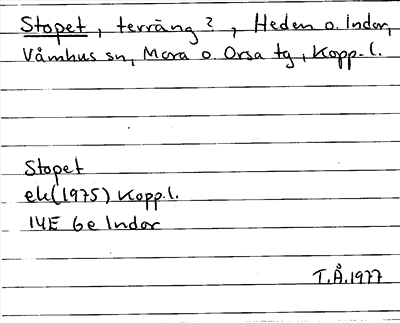 Stopet, terräng?, Heden o. Indor,
Våmhus sn, Mora o. Orsa tg, Kopp. l.
Stopet
ek (1975) Kopp. l.
14E 6e Indor
T.Å. 1977